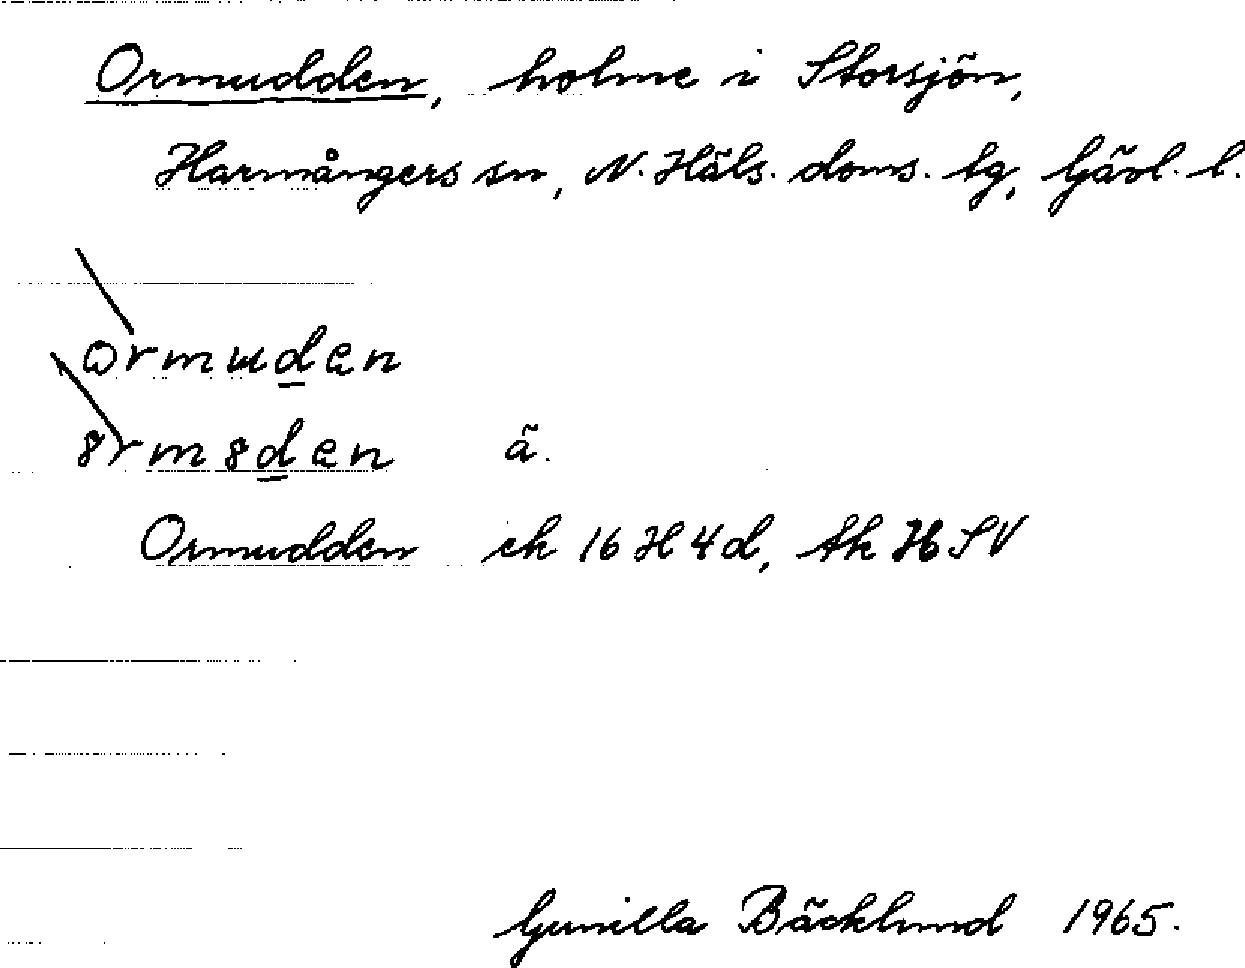 Ormudden, holme i Storsjön,
Harmångers sn, N. Häls. doms. tg, Gävl. l.
ormuden
8rm8den ä.
Ormudden ek 16 H 4d, tk H SV
Gunilla Bäcklund 1965.